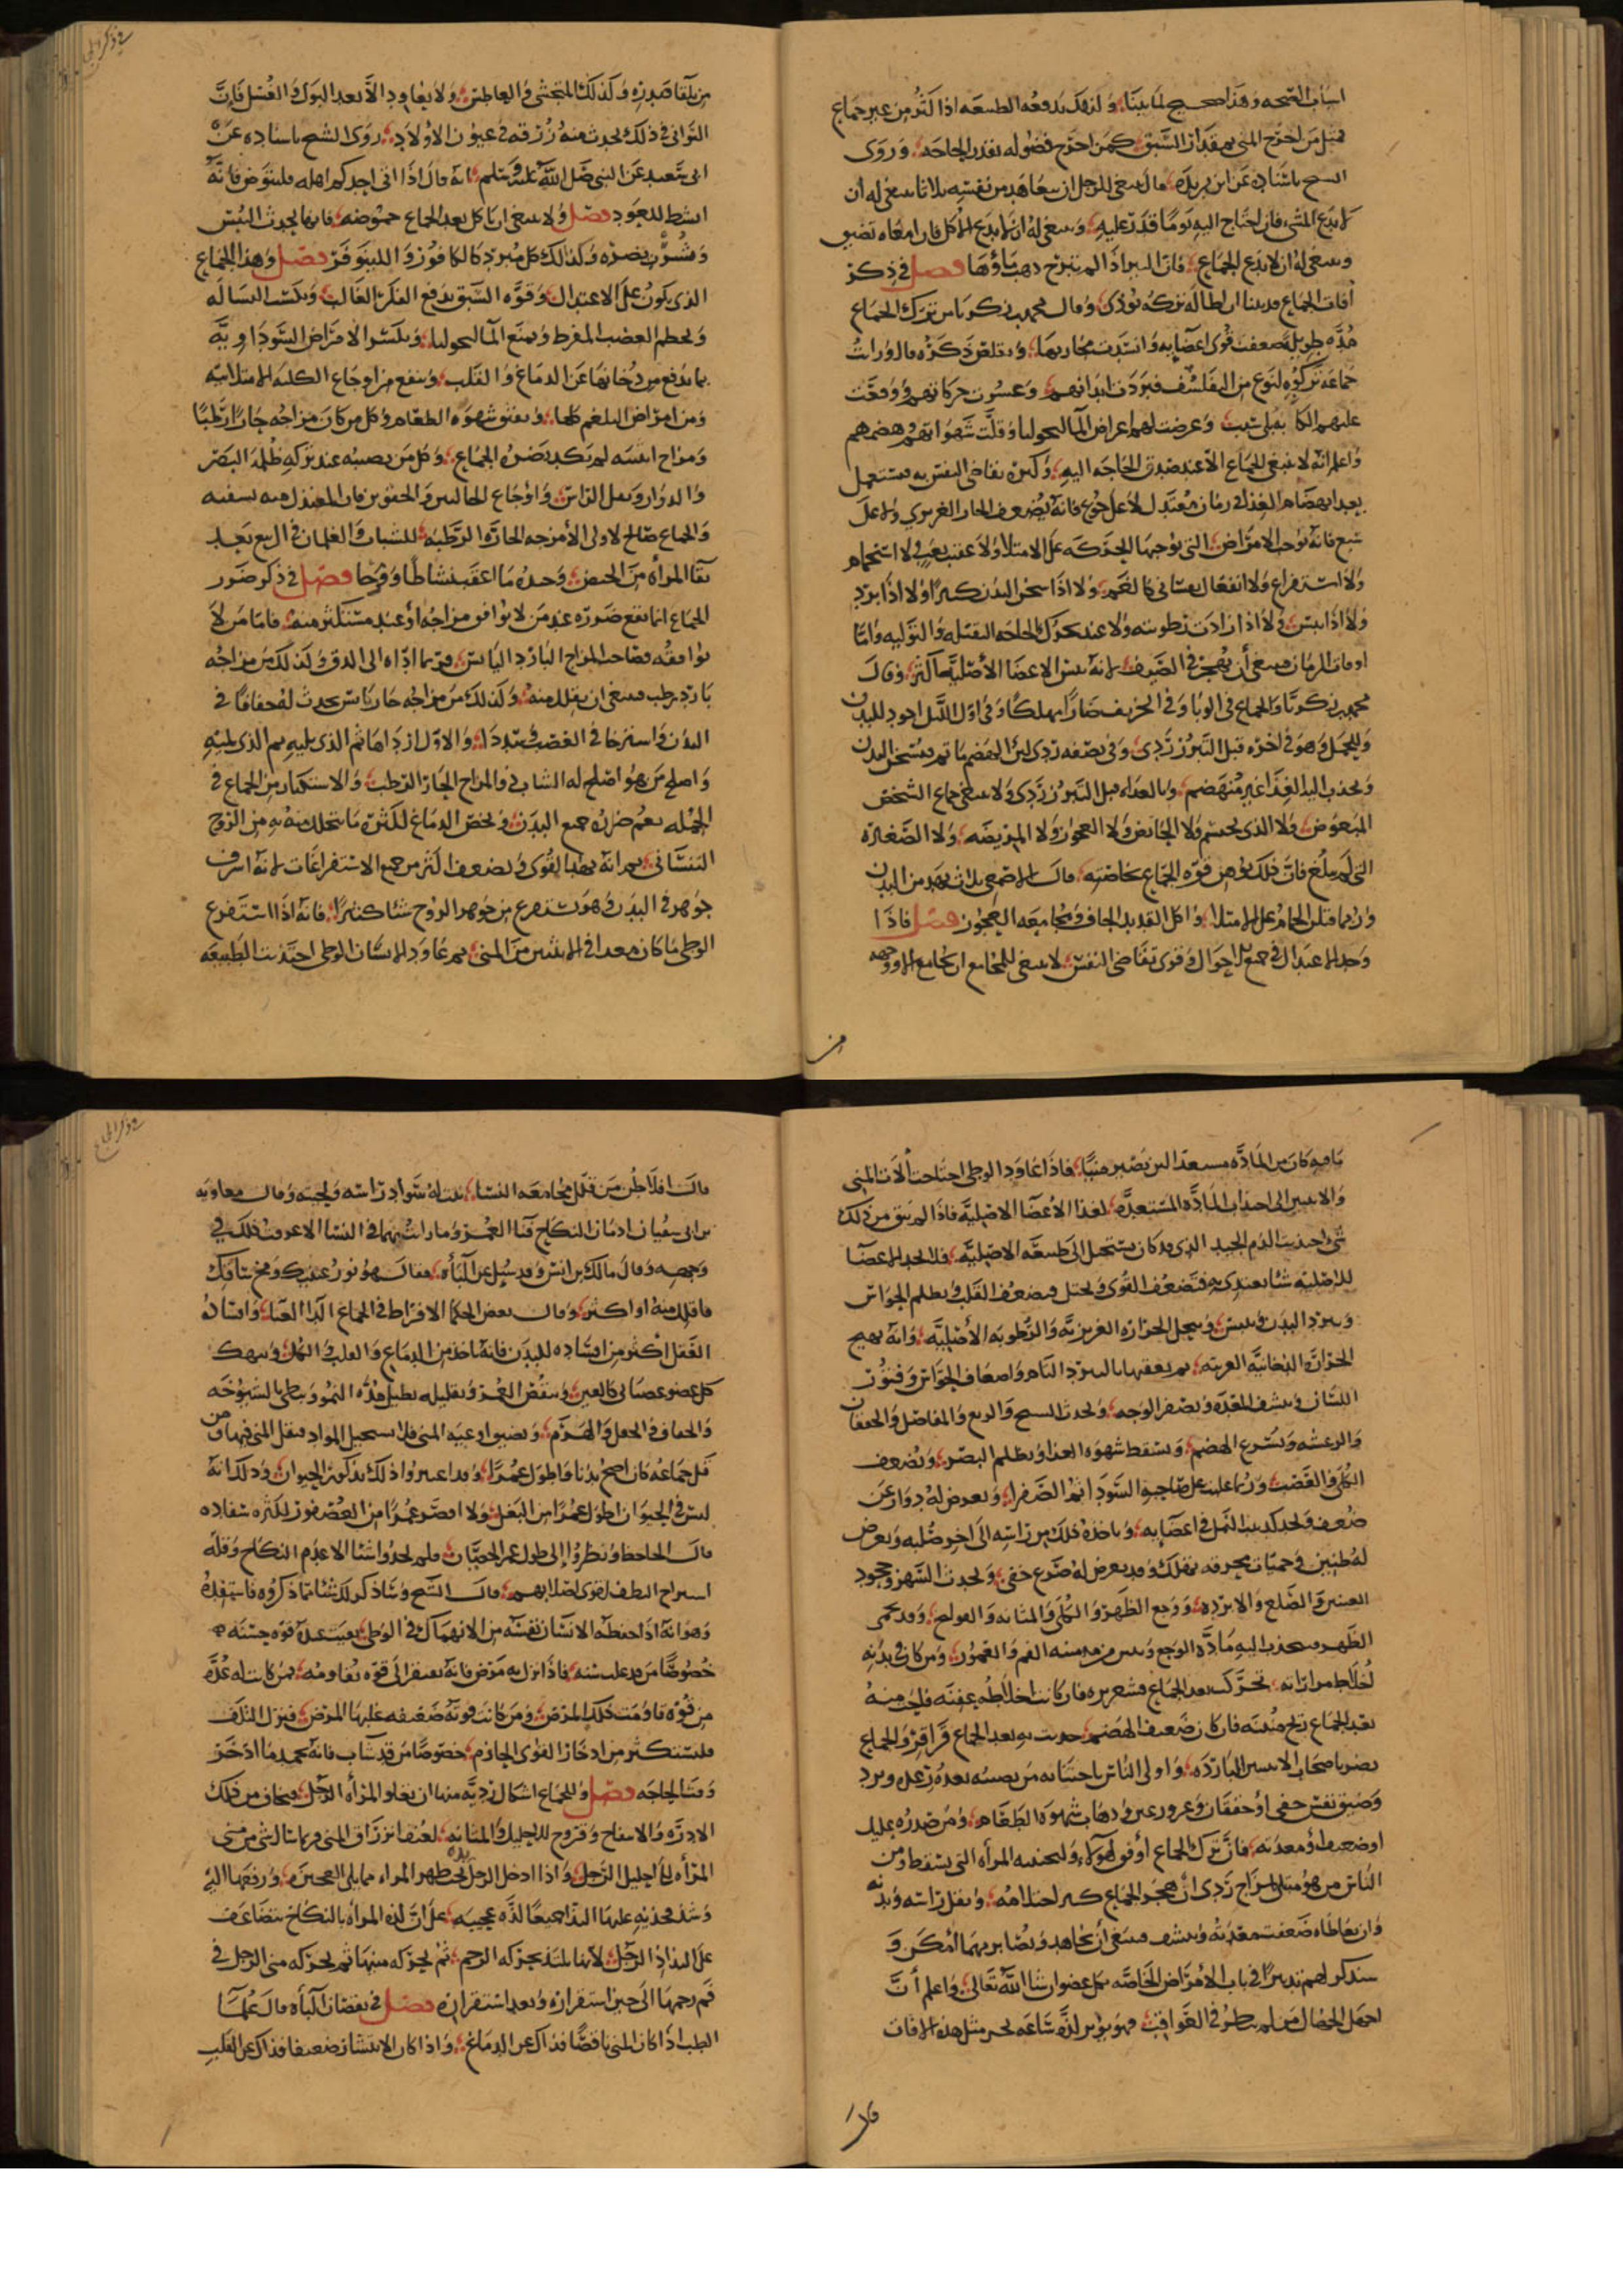 اسباب الصحه وهذا صحيح لما بينا ولذلك تدفعه الطبيعه اذا كثر من غير جماع
فمثل من اخرج المني بمقدار الشبق كمن اخرج فضوله بقدر الحاجه وروى
الشيخ باسناده عن ابن بريده قال ينبغي للرجل ان يتعاهد من نفسه ثلاثا ينبغي له ان
لا يدع المشي فان احتاج اليه يوما قدر عليه وينبغي له ان لا يدع الاكل فان امعاه تضيق
وينبغي له ان لا يدع الجماع فان البير اذا لم تنزح ذهب ماؤها فصل في ذكر
افات الجماع قد بينا ان اطاله تركه تؤذي وقال محمد بن زكريا من ترك الجماع
مده طويله ضعفت قوى اعضايه وانسدت مجاريها وتقلص ذكره قال ورايت
جماعه تركوه لنوع من التفلسف فبردت ابدانهم وعسرت حركاتهم ووقعت
عليهم الكابه بلا سبب وعرضت لهم اعراض المالنخوليا وقلت شهواتهم وهضمهم
واعلم انه لا ينبغي الجماع الا عند صدق الحاجه اليه وكثره تقاضي النفس به فيستعمل
بعد انهضام الغذا في زمان معتدل لا على جوع فانه يضعف الحار الغريزي ولا على
شبع فانه يوجب الامراض التي توجبها الحركه على الامتلا ولا عقيب تعب ولا استحمام
ولا استفراغ ولا انفعال نفساني كالغم ولا اذا سخن البدن كثيرا ولا اذا برد
ولا اذا يبس ولا اذا زادت رطوبته ولا عند تحرك الحاجه الثقيله والتوليه واما
اوقات الزمان فينبغي أن يهجر في الصيف لانه ييبس الاعضا الأصليه اكثر وقال
محمد بن زكريا والجماع في الوبا وفي الخريف ضارا مهلكا وفي اول الليل اجود للبدن
وللحبل وهو في اخره قبل التبرز ردي وفي نصفه ردي لين الهضم ما تم فيسخن البدن
ويجذب اليه الغذا غير منهضم وبالغداه قبل التبرز ردي ولا ينبغي جماع الشخص
المبغوض ولا الذي يحتشم ولا الحائض ولا العجوز ولا المريضه ولا الصغيره
التي لم تبلغ فان ذلك يوهن قوه الجماع بخاصته قال الاصمعي ثلاث يهدمن البدن
وربما قتلن الحمام على الامتلا واكل القديد الجاف ومجامعه العجوز فصل فاذا
وجد الاعتدال في جميع الاحوال وقوى تقاضي النفس لا ينبغي للمجامع ان يجامع الا ووجهه
من
في ذكر الجماع
من تلقا صدره وكذلك المتجشي والعاطس ولا يعاود الا بعد البول والغسل فان
التواني في ذلك يحدث منه زرقه في عيون الاولاد روى الشيخ باسناده عن
ابي سعيد عن النبي صلى الله عليه وسلم انه قال اذا اتى احدكم اهله فليتوض فانه
انشط للعود فصل ولا ينبغي ان ياكل بعد الجماع حموضه فانها تحدث اليبس
وشرب بضره وكذلك كل مبرد كالكافور واللينوفر فصل وهذا الجماع
الذي يكون على الاعتدال وقوه الشبق يدفع الفكر الغالب ويكسب البساله
ويحطم الغضب المفرط ويمنع المالنخوليا ويكسر الامراض السوداويه
بما يدفع من دخانها عن الدماغ والقلب وينفع من اوجاع الكليه الامتلائيه
ومن امراض البلغم كلها ويفتق شهوه الطعام وكل من كان مزاجه حارا رطبا
ومزاج انثييه لم يكد يضره الجماع وكل من يصيبه عند تركه ظلمه البصر
والدوار وثقل الراس واوجاع الحالبين والحقوين فان المعتدل منه يشفيه
والجماع صالح لاولي الأمزجه الحاره الرطبه للشباب والغلمان في الربيع بعيد
نقا المراه من الحيض وحده ما اعقب نشاطا وفرحا فصل في ذكر ضرر
الجماع انما تقع ضرره عند من لا يوافق مزاجه أو عند مستكثر منه فاما من لا
يوافقه فصاحب المزاج البارد اليابس فربما اداه الى الدق وكذلك من مزاجه
بارد رطب فينبغي ان يقلل منه وكذلك من مزاجه حار يابس يحدث له جفافا في
البدن واسترخا في العصب وتبددا والاول ازداها ثم الذي يليه ثم الذي يليه
واصلح من هو اصلح له الشاب ذو المزاج الحار الرطب والاستكثار من الجماع في
الجمله يعم ضرره جميع البدن ويخص الدماغ لكثره ما يتحلل منه به من الروح
النفساني ثم انه يهد القوى ويضعف اكثر من جميع الاستفراغات لانه اشرف
جوهر في البدن وهو يستفرغ من جوهر الروح شئا كثيرا فانه اذا استفرغ
الوطي ما كان معدا في الانثيين من المني ثم عاود الانسان الوطي اجتذبت الطبيعه
ما فيه كان من الماده مستعدا لان يصير منيا فاذا عاود الوطي احتاجت آلات المني
والانثيين الى اجتذاب الماده المستعده لغذا الأعضا الاصليه فاذا لم يبق من ذلك
شئ اجتذبت الدم الجيد الذي قد كان يستحيل الى طبيعه الاصليه فلا تجد الاعضا
الاصليه شئا تغتذي به فتضعف القوى وتختل ويضعف القلب وتظلم الحواس
ويبرد البدن وييبس ويتحلل الحراره الغريزيه والرطوبه الأصليه وانه يهيج
الحراره الدخانيه الغريبه ثم يعقبها بالبرد التام واضعاف الحواس وفتور
اللسان وينشف المعده ويصفر الوجه ويحدث التشنج والربع والمفاصل والخفقان
والرعشه ويسرع الهضم ويسقط شهوه الغذا ويظلم البصر ويضعف
الكلى والقضيب وربما غلبت على صاحبه السودا ثم الصفرا ويعرض له دوار عن
ضعف ويجد كدبيب النمل في اعضايه وياخذه ذلك من راسه الى اخر صلبه ويعرض
له طنين وحميات محرقه تهلك وقد يعرض له صرع خفي ويحدث السهر وجحوظ
العينين والصلع والابرده ووجع الظهر والكلى والمثانه والقولنج وقد تحمى
الظهر فتجذب اليه ماده الوجع وييبس من منيه الفم والعمور ومن كان في بدنه
أخلاط مراريه تحرك بعد الجماع قشعريره فان كانت اخلاطه عفنه فاحت منه
بعد الجماع ريح منتنه فان كان ضعيف الهضم حدثت به بعد الجماع قراقر والجماع
يضر باصحاب الانثيين البارده واولى الناس باجتنابه من يصيبه بعده رعده وبرد
وضيق نفس خفي أو خفقان وغور عين وذهاب شهوه الطعام ومن صدره عليل
او ضعيف أو معدته فان ترك الجماع أوفق لهؤلاء وليجتنبه المراه التي تسقط ومن
الناس من هو مبتلى بمزاج ردي ان هجر الجماع كثر احتلامه وثقل راسه وبدنه
وان تعاطاه ضعفت معدته وينشف فينبغي أن يجاهد ويصابر مهما أمكن و
سنذكر لهم تدبيرا في باب الأمراض الخاصه بكل عضو ان شا الله تعالى واعلم أن
اجهل الجهال من لم ينظر في العواقب فهو يؤثر لذه ساعه تجر مثل هذه الافات
قال
في ذكر الجماع
قال افلاطن من قلل مجامعه النسا ثبت له سواد راسه ولحيته وقال معاويه
بن ابي سفيان ادمان النكاح فنا العمر وما رايت نهما في النسا الا عرفت ذلك في
وجهه وقال مالك بن انس وقد سئل عن الباه فقال هو نور عينيك ومخ ساقيك
فاقلل منه او اكثر وقال بعض الحكما الافراط في الجماع الدا العيا وافساده
العقل اكثر من افساده للبدن فانه ياخذ من الدماغ والقلب والكلى وينهك
كل عضو عصباني كالعين وينقص العمر وتقليله يطيل مده النمو ويبطي بالشيخوخه
والجفاف والجعل والهرم ويضيق اوعيه المني فلا تستحيل المواد فيقل المني فيها ومن
قلل جماعه كان اصح بدنا واطول عمرا وقد اعتبروا ذلك بذكور الحيوان وذلك انه
ليس في الحيوان اطول عمرا من البغل ولا اقصر عمرا من العصفور لكثره سفاده
قال الجاحظ ونظروا إلى طول عمر الخصيان فلم يجدوا شئا الا عدم النكاح وقله
استفراغ النطف لقوى اصلابهم قال الشيخ وساذكر لك شئا مما ذكروه فاستفده
وهو انه اذا حفظ الانسان نفسه من الانهماك في الوطي بقيت عنده قوه حسنه
خصوصا من قد علت سنه فاذا نزل به مرض فانه يفتقر الى قوه تقاومه فمن كانت له عده
من قوه قاومت ذلك المرض ومن كانت قوته ضعيفه غلبها المرض فنزل التلف
فليستكثر من ادخار القوى الحازم خصوصا من قد شاب فانه يحمد ما ادخر
وقت الحاجه فصل وللجماع اشكال رديه منها ان تعلو المراه الرجل فيخاف من ذلك
الادره والانتفاخ وقروح الاحليل والمثانه لعنف انزراق المني وربما سال شي من مني
المرأه الى احليل الرجل واذا ادخل الرجل يده تحت ظهر المراه مما يلي العجز ورفعها اليه
وشد فخذيه عليها التذا جميعا لذه عجيبه على ان لذه المراه بالنكاح تتضاعف
على التذاذ الرجل لانها تلتذ بحركه الرحم ثم بحركه منيها ثم بحركه مني الرجل في
فم رحمها الى حين استقراره وبعد استقراره فصل في نقصان الباه قال علما
الطب اذا كان المني ناقصا فذاك عن الدماغ واذا كان الانتشار ضعيفا فذاك عن القلب